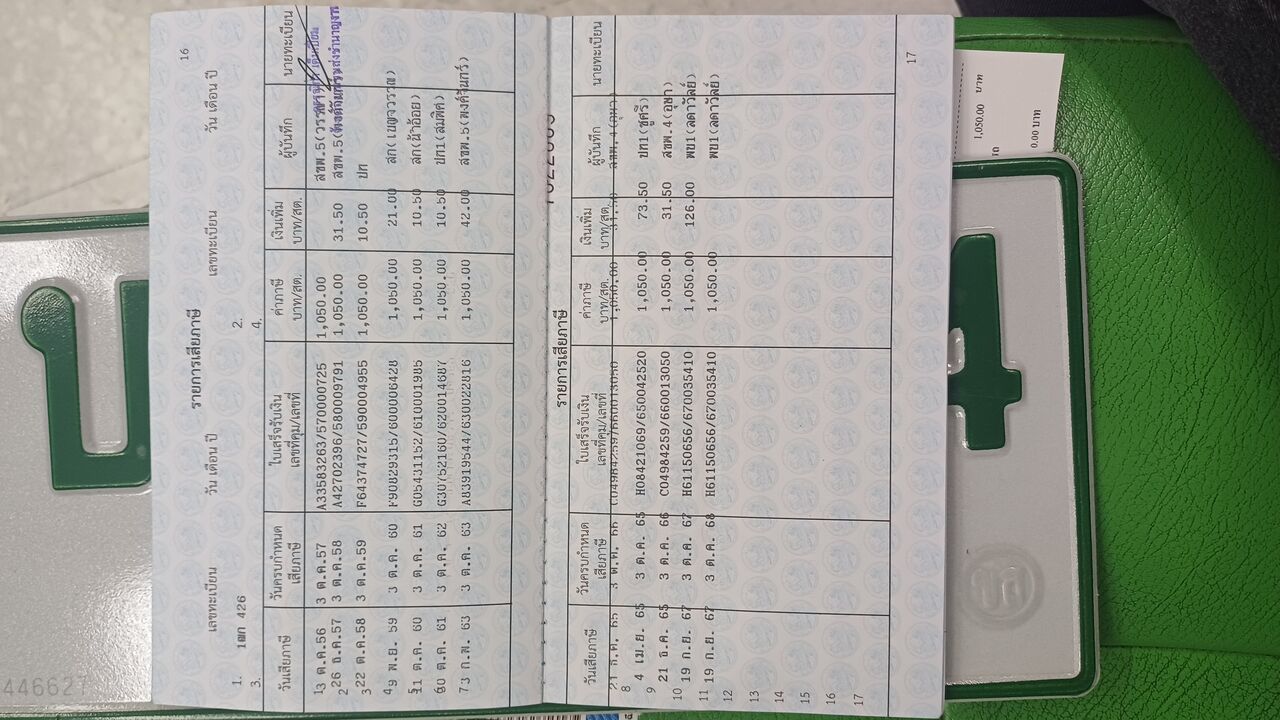 16
รายการเสียภาษี
เลขทะเบียน วัน เดือน ปี เลขทะเบียน วัน เดือน ปี
1. 1ฒก 426 2.
3. 4.
วันเสียภาษี วันครบกำหนดเสียภาษี ใบเสร็จรับเงิน เลขที่คุม/เลขที่ ค่าภาษี บาท/สต. เงินเพิ่ม บาท/สต. ผู้บันทึก นายทะเบียน
1 3 ต.ค.56 3 ต.ค.57 A33583263/570000725 1,050.00
2 26 ธ.ค.57 3 ต.ค.58 A42702396/580009791 1,050.00 31.50
3 22 ต.ค.58 3 ต.ค.59 F64374727/590004955 1,050.00 10.50 ปก
4 9 พ.ย. 59 3 ต.ค. 60 F90829315/600006428 1,050.00 21.00 สก(เบญจวรรณ)
5 11 ต.ค. 60 3 ต.ค. 61 G05431152/610001985 1,050.00 10.50 สก(น้ำอ้อย)
6 30 ต.ค. 61 3 ต.ค. 62 G30752160/620014687 1,050.00 10.50 ปก1(สมพิศ)
7 3 ก.พ. 63 3 ต.ค. 63 A83919544/630022816 1,050.00 42.00 สขพ.5(พงศ์จินกร์)
รายการเสียภาษี
วันเสียภาษี วันครบกำหนดเสียภาษี ใบเสร็จรับเงิน เลขที่คุม/เลขที่ ค่าภาษี บาท/สต. เงินเพิ่ม บาท/สต. ผู้บันทึก นายทะเบียน
8 4 เม.ย. 65 3 ต.ค. 65 H08421069/650042520 1,050.00 73.50 ปก1(ชูศรี)
9 21 ธ.ค. 65 3 ต.ค. 66 C04984259/660013050 1,050.00 31.50 สขพ.4(อุษา)
10 19 ก.ย. 67 3 ต.ค. 67 H61150656/670035410 1,050.00 126.00 พข1(ลดาวัลย์)
11 19 ก.ย. 67 3 ต.ค. 68 H61150656/670035410 1,050.00 พข1(ลดาวัลย์)
12
13
14
15
16
17
17
1,050.00 บาท
0.00 บาท
446627